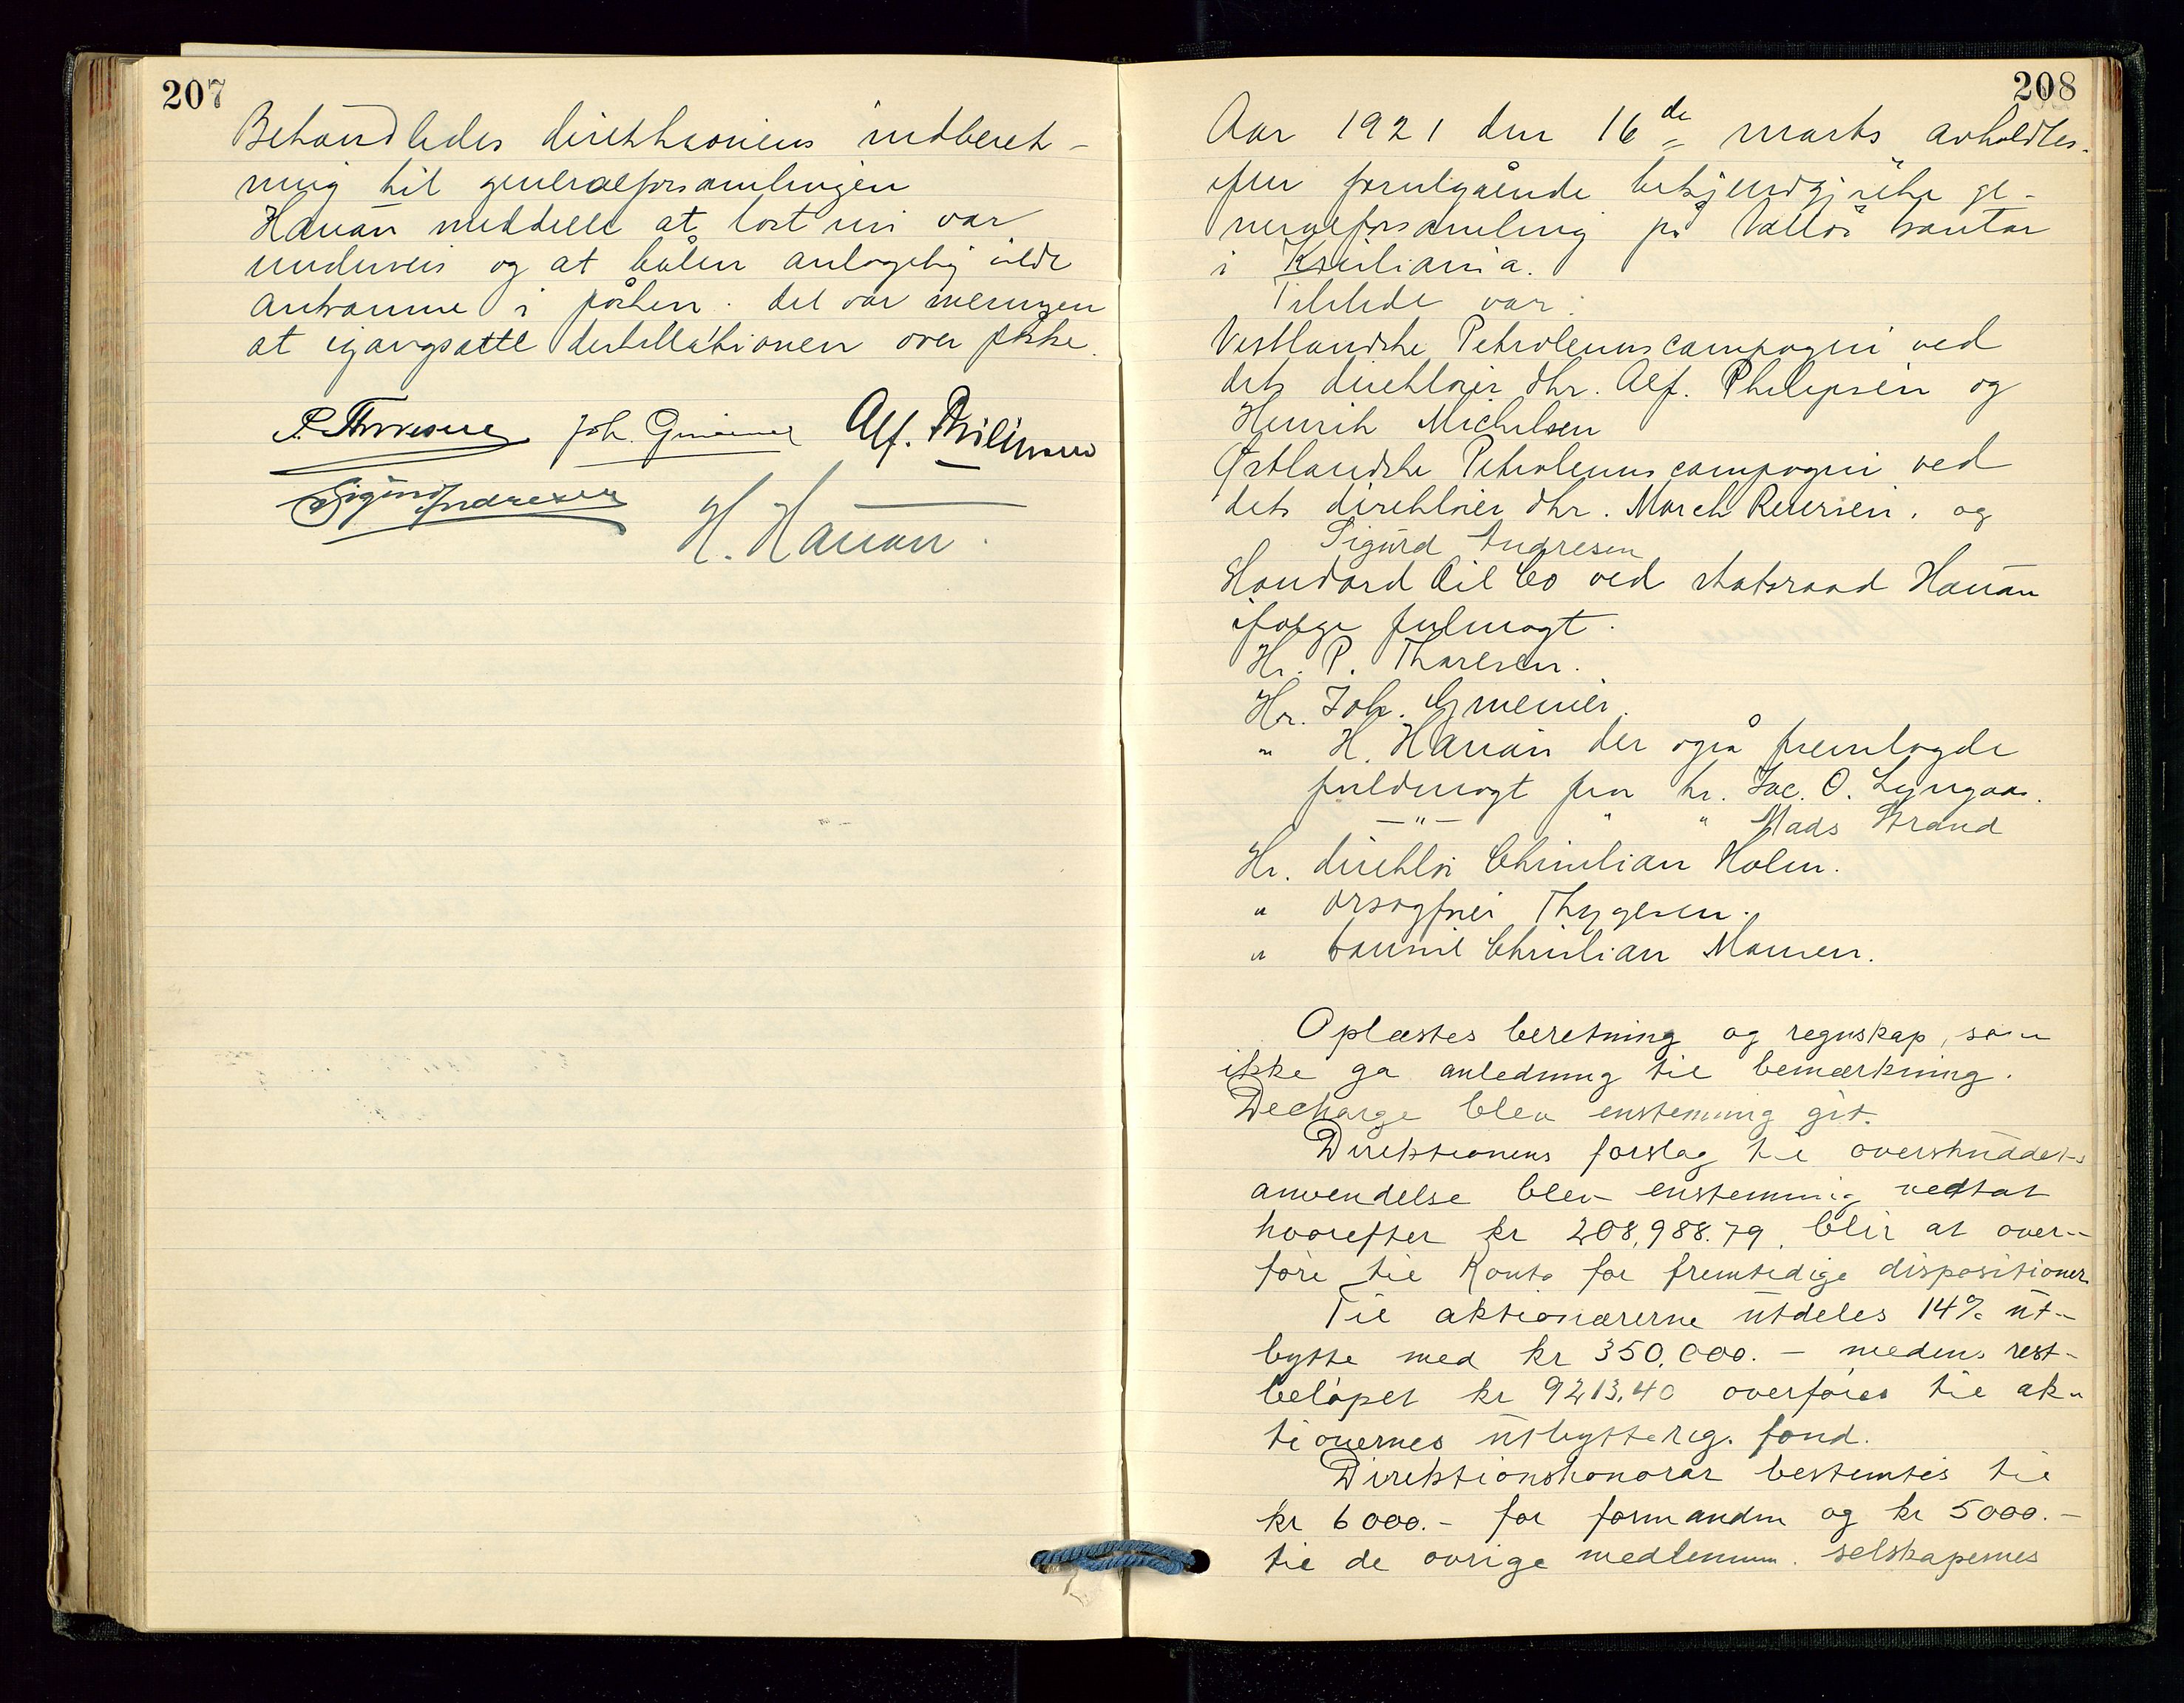 207
Behandledes direktionens indberet-
ning til generalforsamlingen
Hauan meddelte at lost nu var
underveis og at båten antagelig vilde
ankomme i påsken. Det var meningen
at igangsætte destillationen over påske.
P. Thoresen Joh. Gmeiner Alf. Philipsen
Sigurd Andresen
H. Hauan.
208
Aar 1921 den 16de marts avholdtes
efter forutgående bekjendtgjørelse ge-
neralforsamling på Vallø kontor
i Kristiania.
Tilstede var:
Vestlandske Petroleumscompagni ved
dets direktører dhr. Alf. Philipsen og
Henrik Michelsen
Østlandske Petroleumscompagni ved
dets direktører dhr. March Reiersen. og
Sigurd Andresen
Standard Oil Co ved statsraad Hauan
ifølge fulmagt.
Hr. P. Thoresen.
Hr. Joh. Gmeiner.
" H. Hauan der også fremlagde
fuldmagt fra hr. Jac. O. Lyngaas.
—"— " " Mads Strand
Hr. direktør Christian Holm.
" Thygesen.
" Christian Mamen.
Oplæstes beretning og regnskap, som
ikke ga anledning til bemærkning.
Decharge blev enstemmig git.
Direktionens forslag til overskuddets
anvendelse blev enstemmig vedtat
hvorefter kr 208,988.79. blir at over-
føre til Konto for fremtidige dispositioner
Til aktionærerne utdeles 14% ut-
bytte med kr 350,000.- medens rest-
beløpet kr 9213,40 overføres til ak-
tionernes utbytte reg. fond.
Direktionshonorar bestemtes til
kr 6000.- for formanden og kr 5000.-
til de øvrige medlemmer. selskapernes